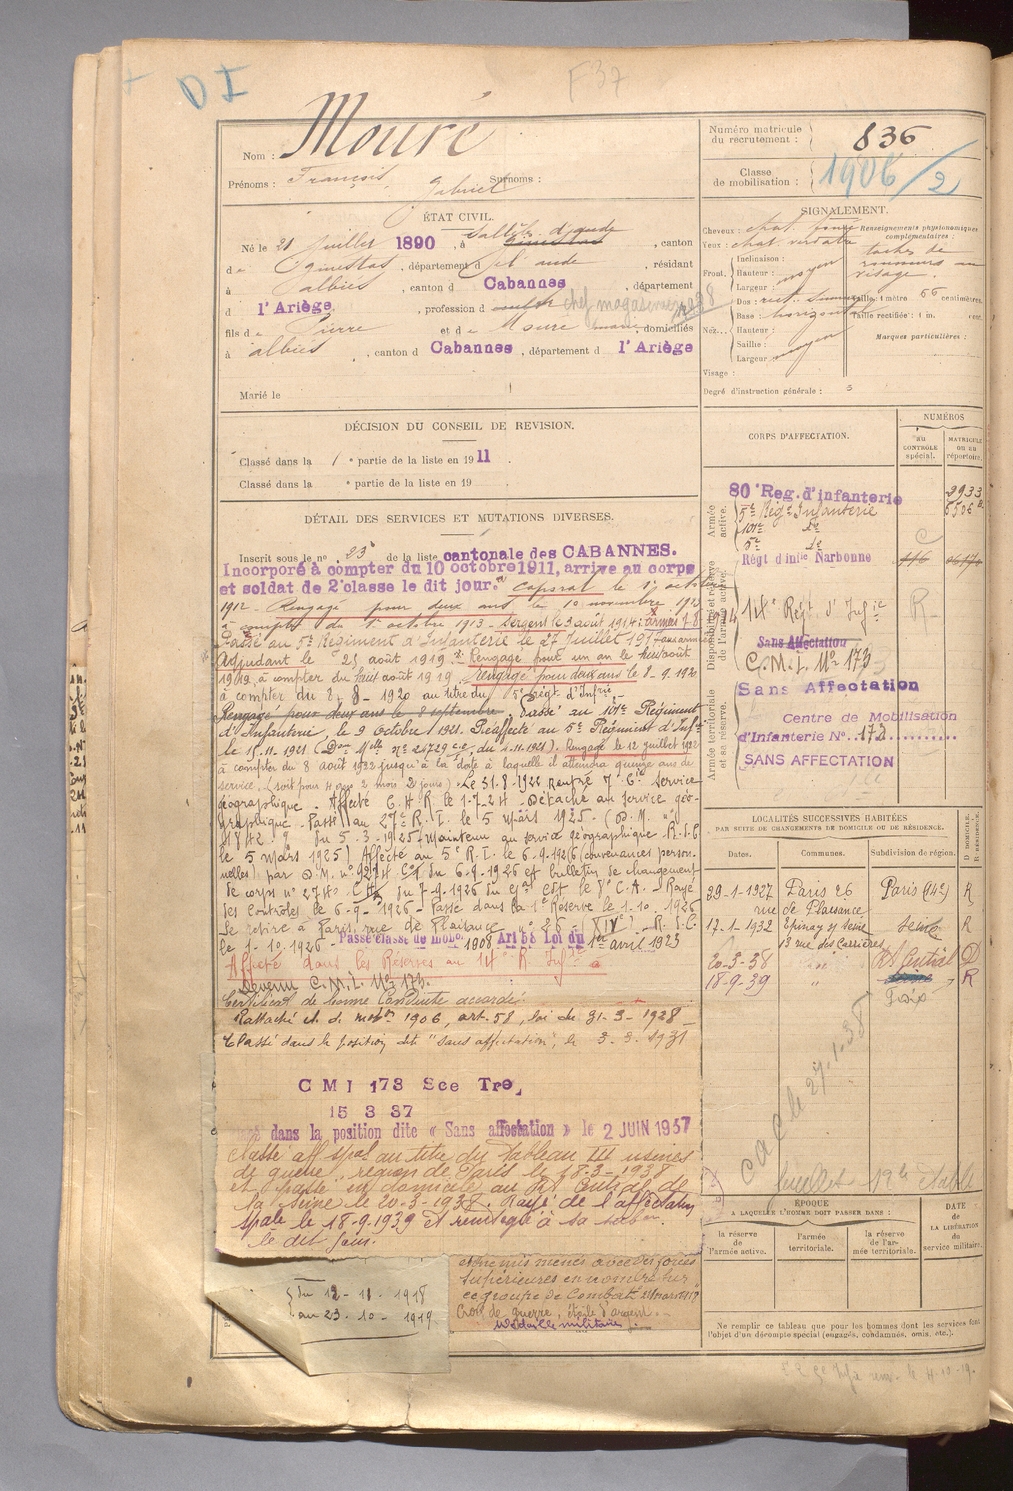 D I
F 37
Nom : Mouré
Prénoms : François, Gabriel Surnoms :
ÉTAT CIVIL.
Né le 21 Juillet 1890, à Sallèles d'aude Ginestas, canton
de Ginestas, département de l'aude, résidant
à albiès, canton d Cabannes, département
d l'Ariège, profession d chef magasinier
fils de Pierre et de Moure marie, domiciliés
à albiès, canton d Cabannes, département d l'Ariège
Marié le
DÉCISION DU CONSEIL DE REVISION.
Classé dans la 1e partie de la liste en 1911.
Classé dans la e partie de la liste en 19 .
DÉTAIL DES SERVICES ET MUTATIONS DIVERSES.
Inscrit sous le no 23 de la liste cantonale des CABANNES.
Incorporé à compter du 10 octobre 1911, arrivé au corps
et soldat de 2e classe le dit jour. Caporal le
1912 - Rengagé pour deux ans le
à compter du 1er octobre 1913 - Sergent le 3 août 1914
Passé au 5e Régiment d'Infanterie le 27 Juillet
Adjudant le 25 août 1919. Rengagé pour un an le huit août
1919, à compter du huit août 1919, rengagé pour deux ans le 8-9-1920
à compter du 8-8-1920 au titre du 5e régt d'Infrie.
Rengagé pour deux ans le 8 septembre. Passé au 101e Régiment
d'Infanterie, le 9 octobre 1921. Réaffecté au 5e Régiment d'Infie
le 15.11.1921 (Don Melle no 24729 du 4.11.1921). Rengagé le 12 juillet 1922
à compter du 8 août 1922 jusqu'à la date à laquelle il atteindra quinze ans de
service. (soit pour 4 ans 2 mois 2 jours). Le 31.8.1922 Rentré 7e Cie Service
géographique. Affecté C. H. R. le 1-7-24 - Détaché au service géo-
graphique - Passé au 27e R. I. le 5 mars 1925. (D. M. no
du 5.3.1925) Maintenu au service géographique. R.S.C
le 5 mars 1925) Affecté au 5e R. I. le 6-9-1926 (convenances person-
nelles) par D. M. no du 6-9-1926 et bulletin de changement
de corps no 2742 du 7-9-1926 du Gal Cdt le 8e C. A. Rayé
des contrôles le 6-9-1926 - Passé dans la 1e Réserve le 1-10-1926
Se retire à Paris, rue de Plaisance no 26 - XIVe. - R.S.C.
le 1-10-1926 - Passé classe de mobon 1908 Art 58 Loi du 1er avril 1923
Affecté dans les Réserves au 14e R. Infie
Devenu C.M.I. No 173.
Certificat de bonne Conduite accordé
Rattaché cl. de mobon 1906, art. 58, loi du 31-3-1928
Classé dans la position dite "sans affectation", le 3.3.1931
C M I 173 Sce Tre
15 3 37
dans la position dite « Sans affectation » le 2 JUIN 1937
Classé aff. spal au titre du Tableau III usines
de guerre, région de Paris le 18-3-1938
et passé en domicile au Rt Central de
la Seine le 20-3-1938. Rayé de l'affectation
spale le 18-9-1939 et réintégré à sa subon
le dit jour.
du 12-11-1918
au 23-10-1919
ennemis menés avec des forces
supérieures en nombre sur
ce groupe de Combat
Croix de guerre, étoile d'argent.
Médaille militaire
Numéro matricule du recrutement : 836
Classe de mobilisation : 1906/2
SIGNALEMENT.
Cheveux : chat. foncé
Yeux : chat. verdatre
Renseignements physionomiques complémentaires :
taches de rousseurs au visage.
Front. Inclinaison :
Hauteur : moyen
Largeur :
Nez. Dos : rect. sinueux
Base : horizontal
Hauteur :
Saillie : moyen
Largeur :
Taille : 1 mètre 66 centimètres.
Taille rectifiée : 1 m. cent.
Marques particulières :
Visage :
Degré d'instruction générale : 3
CORPS D'AFFECTATION.
NUMÉROS
au CONTRÔLE spécial.
MATRICULE OU AU répertoire.
Armée active.
80e Rég. d'infanterie 2933
5e Régt Infanterie 5506
101e de
5e de
Disponibilité et réserve de l'armée active.
Régt d'infie Narbonne
14e Régt d'Infie R
Sans Affectation
C.M.I. No 173
Armée territoriale et sa réserve.
Sans Affectation
Centre de Mobilisation
d'Infanterie No. 173
SANS AFFECTATION
LOCALITÉS SUCCESSIVES HABITÉES
PAR SUITE DE CHANGEMENTS DE DOMICILE OU DE RÉSIDENCE.
Dates. Communes. Subdivision de région. D. DOMICILE. R. RÉSIDENCE.
29-1-1927 Paris 26 rue de Plaisance Paris (14e) R
12-1-1932 Epinay s/ Seine 13 rue des Carrières Seine R
20-3-38 Rt Central D
18-9-39 " Foix R
le 27.1.38
ÉPOQUE
A LAQUELLE L'HOMME DOIT PASSER DANS :
la réserve de l'armée active.
l'armée territoriale.
la réserve de l'armée territoriale.
DATE DE LA LIBÉRATION du service militaire.
Ne remplir ce tableau que pour les hommes dont les services font
l'objet d'un décompte spécial (engagés, condamnés, omis, etc.).